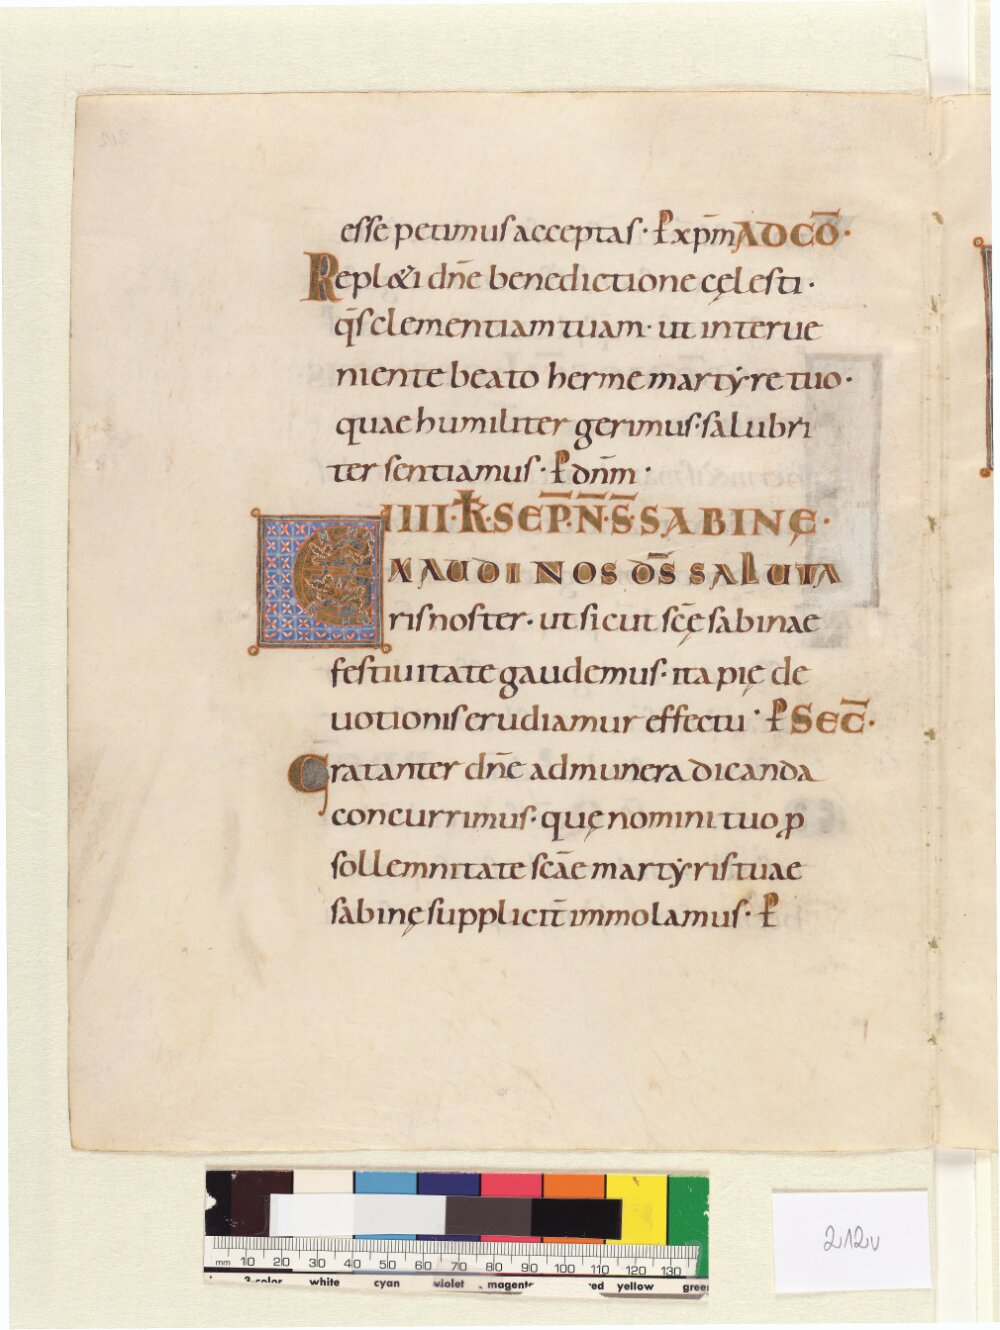 esse petimus acceptas· P̄ xp̄m AD CŌ·
Repl&i dn̄e benedictione cęlesti·
q̄s clementiam tuam· ut interue
niente beato herme martẏre tuo·
quae humiliter gerimus· salubri
ter sentiamus· P̄ dn̄m·
IIII·K̄·SEP̄·N̄·S̄·SABINĘ·
EXAUDI NOS D̄S SALUTA
ris noster· ut sicut sc̄ę sabinae
festiuitate gaudemus· ita pię de
uotionis erudiamur effectu· P̄ SEC̄·
Gratanter dn̄e ad munera dicanda
concurrimus· quę nomini tuo ꝓ
sollemnitate scāe martẏris tuae
sabinę supplicit̄ immolamus· P̄
212v
mm 10 20 30 40 50 60 70 80 90 100 110 120 130
3-color white cyan violet magenta red yellow green